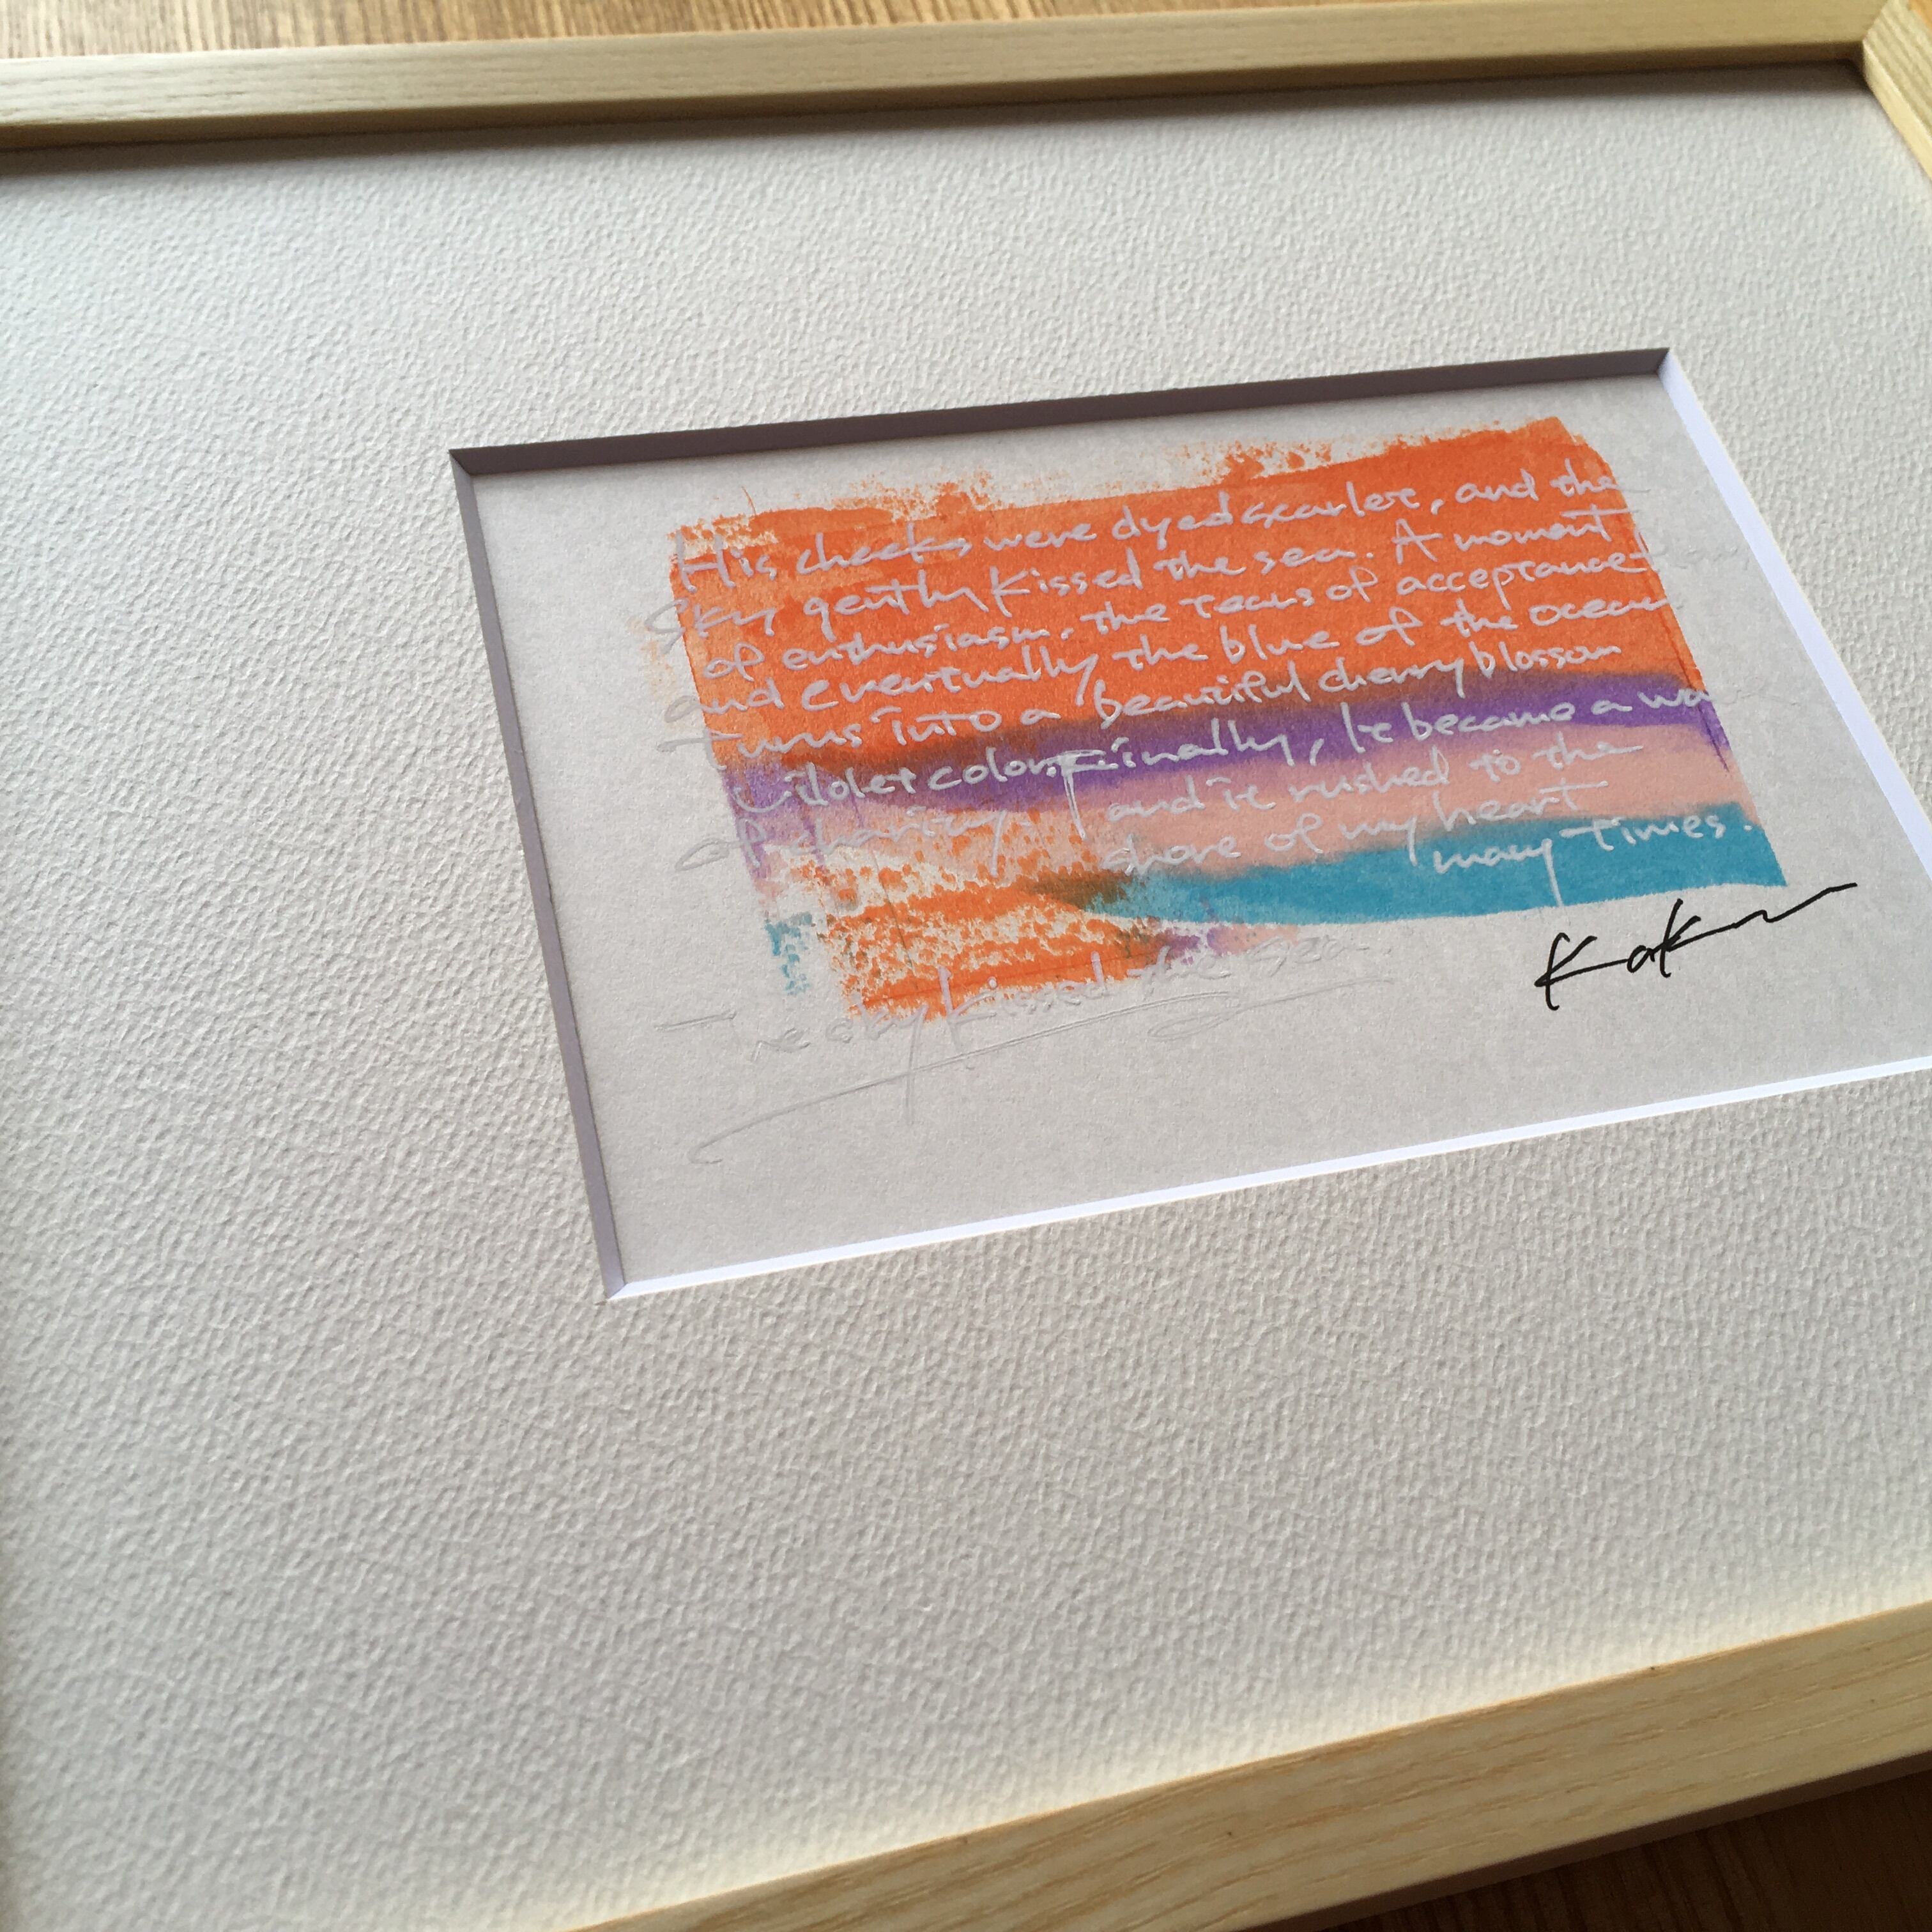 His cheeks were dyed scarlet, and the
sky gently kissed the sea. A moment
of enthusiasm, the tears of acceptance
and eventually the blue of the ocean
turns into a beautiful cherry blossom
violet color. Finally, It became a
of charity and it rushed to the
shore of my heart
many times.
The sky kissed the sea